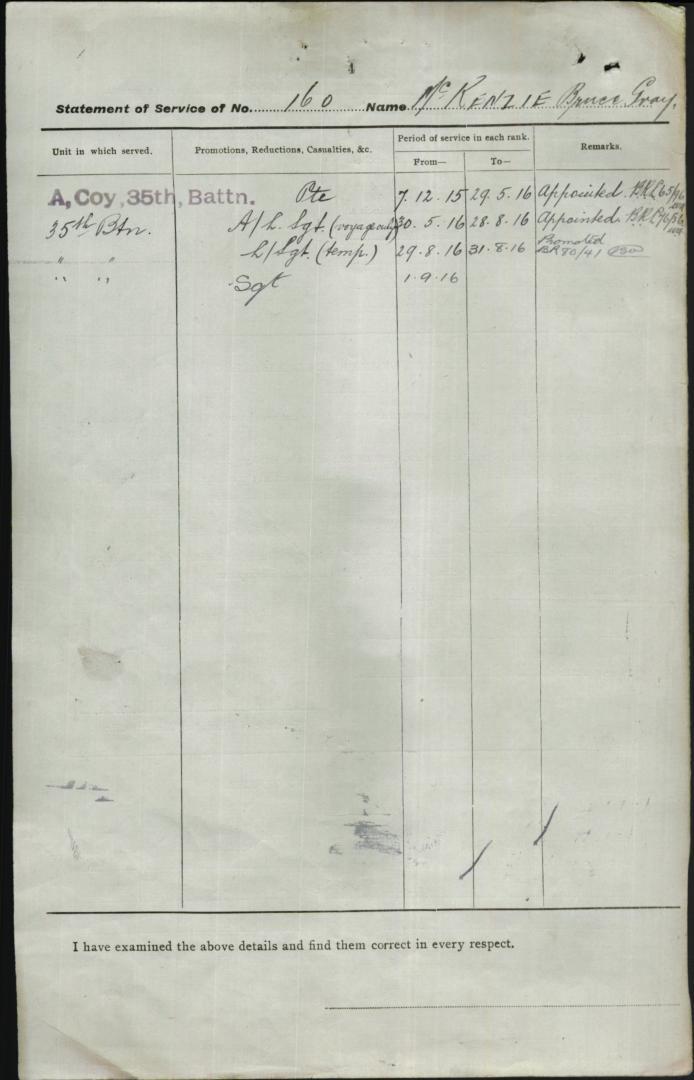 4
Statement of Service of No. 160 Name McKENZIE Bruce Gray.
Unit in which served. Promotions, Reductions, Casualties, &c. Period of service in each rank. Remarks.
From— To—
A, Coy, 35th, Battn. Pte 7.12.15 29.5.16 Appointed. B.R.L 65/96
35th Btn. A/L. Sgt. (voyage only) 30.5.16 28.8.16 Appointed. B.R.L 96/56
" " L/Sgt. (temp.) 29.8.16 31.8.16 Promoted BR 80/41
" " Sgt 1.9.16
I have examined the above details and find them correct in every respect.